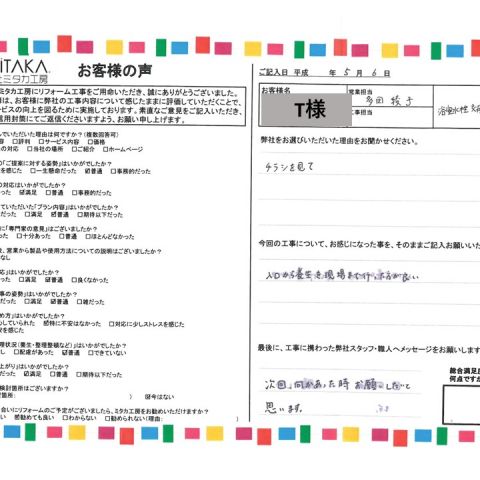 ITAKA
ミタカ工房
お客様の声
ミタカ工房にリフォーム工事をご用命いただき、誠にありがとうございました。
は、お客様に弊社の工事内容について感じたままに評価していただくことで、
ービスの向上を図るために実施しております。素直なご意見をご記入いただき、
信用封筒にてご返信くださいますよう、お願い申し上げます。
んでいただいた理由は何ですか？（複数回答可）
容 □評判 □サービス内容 □価格
の対応 □当社の場所 □ご紹介 □ホームページ
の「ご提案に対する姿勢」はいかがでしたか？
を感じた □一生懸命だった ☑普通 □事務的だった
の対応はいかがでしたか？
った ☑満足 □普通 □事務的だった
ていただいた「プラン内容」はいかがでしたか？
だった □満足 ☑普通 □期待以下だった
に「専門家の意見」はございましたか？
った □十分あった □普通 □ほとんどなかった
後、営業から製品や使用方法についての説明はございましたか？
なし
応」はいかがでしたか？
だった □満足 ☑普通 □良くなかった
の工事の姿勢」はいかがでしたか？
だった ☑満足 □普通 □雑だった
め方」はいかがでしたか？
していられた ☑特に不安はなかった □対応に少しストレスを感じた
安を感じた
理状況（養生・整理整頓など）はいかがでしたか？
し □配慮があった ☑普通 □できていない
上がり」はいかがでしたか？
だった □満足 ☑普通 □期待以下だった
検討箇所はございますか？
） ☑今はない
合いにリフォームのご予定がございましたら、ミタカ工房をお勧めいただけますか？
い ☑勧めても良い □わからない □勧められない（理由： ）
ご記入日 平成 年 5 月 6 日
お客様名
T様
営業担当
工事担当
弊社をお選びいただいた理由をお聞かせください。
チラシを見て
今回の工事について、お感じになった事を、そのままご記入お願いいた
入口から養生を現場まで行い
が良い
最後に、工事に携わった弊社スタッフ・職人へメッセージをお願いします
次回、何かあった時お願いしたいて
思います。
総合満足度
何点ですか